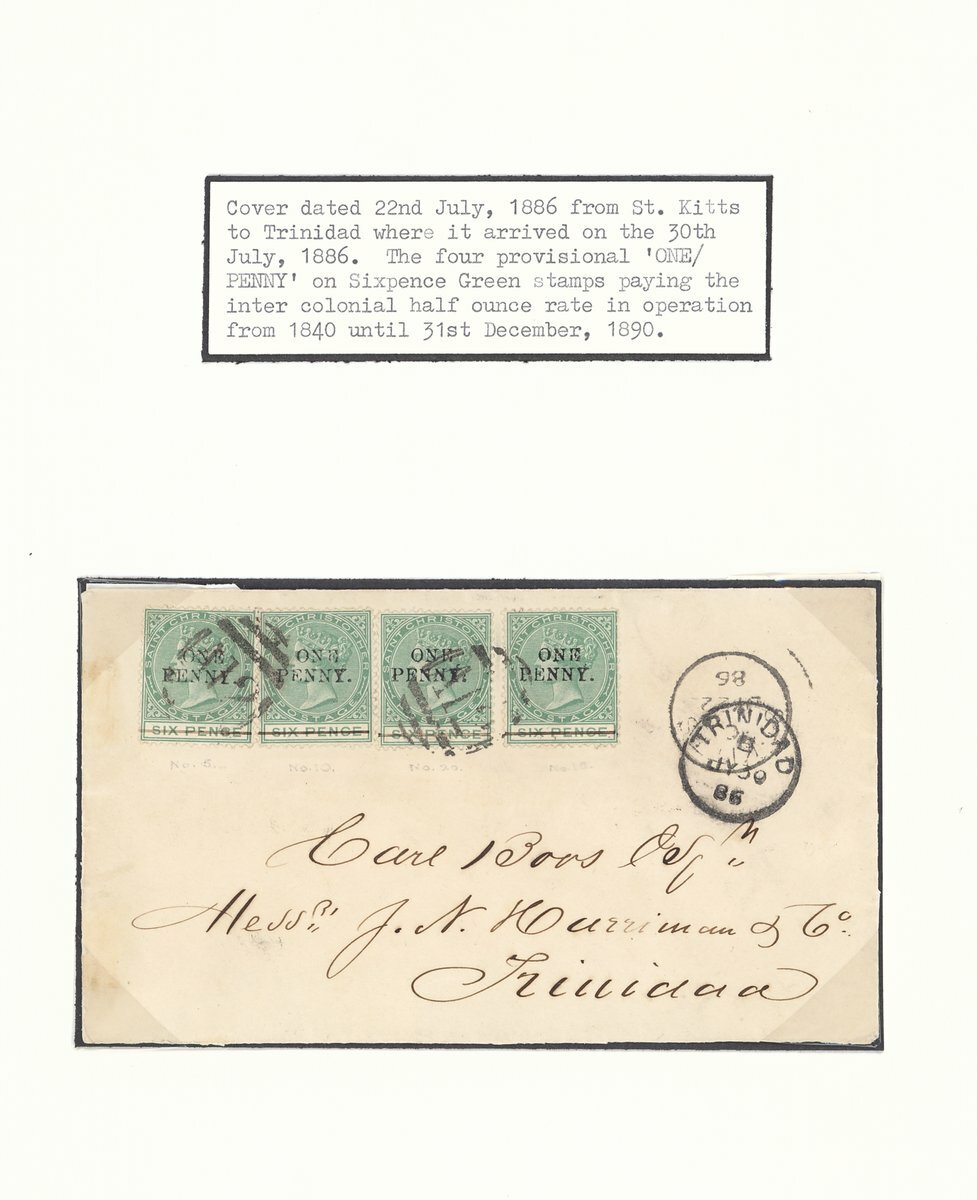 Cover dated 22nd July, 1886 from St. Kitts
to Trinidad where it arrived on the 30th
July, 1886. The four provisional 'ONE/
PENNY' on Sixpence Green stamps paying the
inter colonial half ounce rate in operation
from 1840 until 31st December, 1890.
SAINT CHRISTOPHER SAINT CHRISTOPHER SAINT CHRISTOPHER SAINT CHRISTOPHER
ONE ONE ONE ONE
PENNY. PENNY. PENNY. PENNY.
POSTAGE POSTAGE POSTAGE POSTAGE
SIX PENCE SIX PENCE SIX PENCE SIX PENCE
No. 5. No. 10. No. 20. No. 18.
86
TRINIDAD
B
JY 30
86
Carl Boos Esqr
Messrs J. N. Harriman & Co.
Trinidad